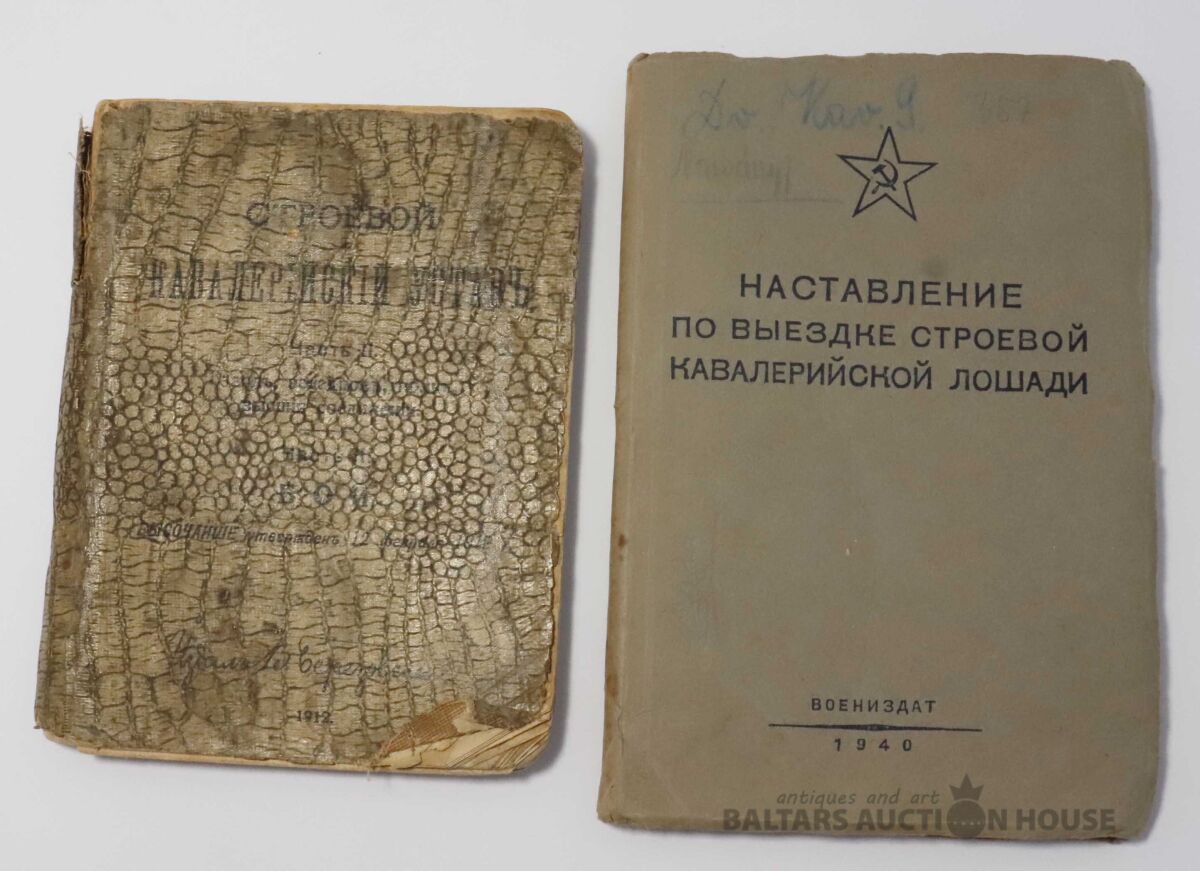 СТРОЕВОЙ
КАВАЛЕРІЙСКІЙ УСТАВЪ
Часть II.
Часть III.
БОЙ.
ВЫСОЧАЙШЕ утвержденъ 12 февраля 1912
1912
Dv. Kav. 9.
НАСТАВЛЕНИЕ
ПО ВЫЕЗДКЕ СТРОЕВОЙ
КАВАЛЕРИЙСКОЙ ЛОШАДИ
ВОЕНИЗДАТ
1940
antiques and art
BALTARS AUCTION HOUSE